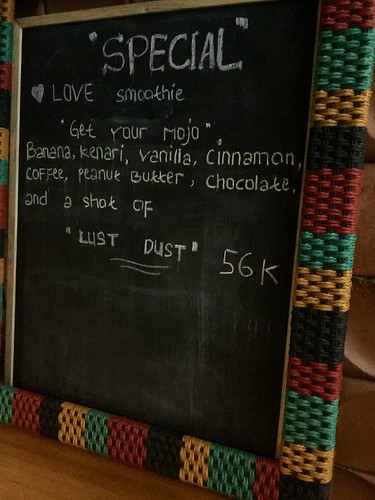 "SPECIAL"
LOVE smoothie
"Get your mojo"
Banana, kenari, vanilla, cinnamon,
coffee, peanut butter, chocolate,
and a shot of
"LUST DUST" 56K